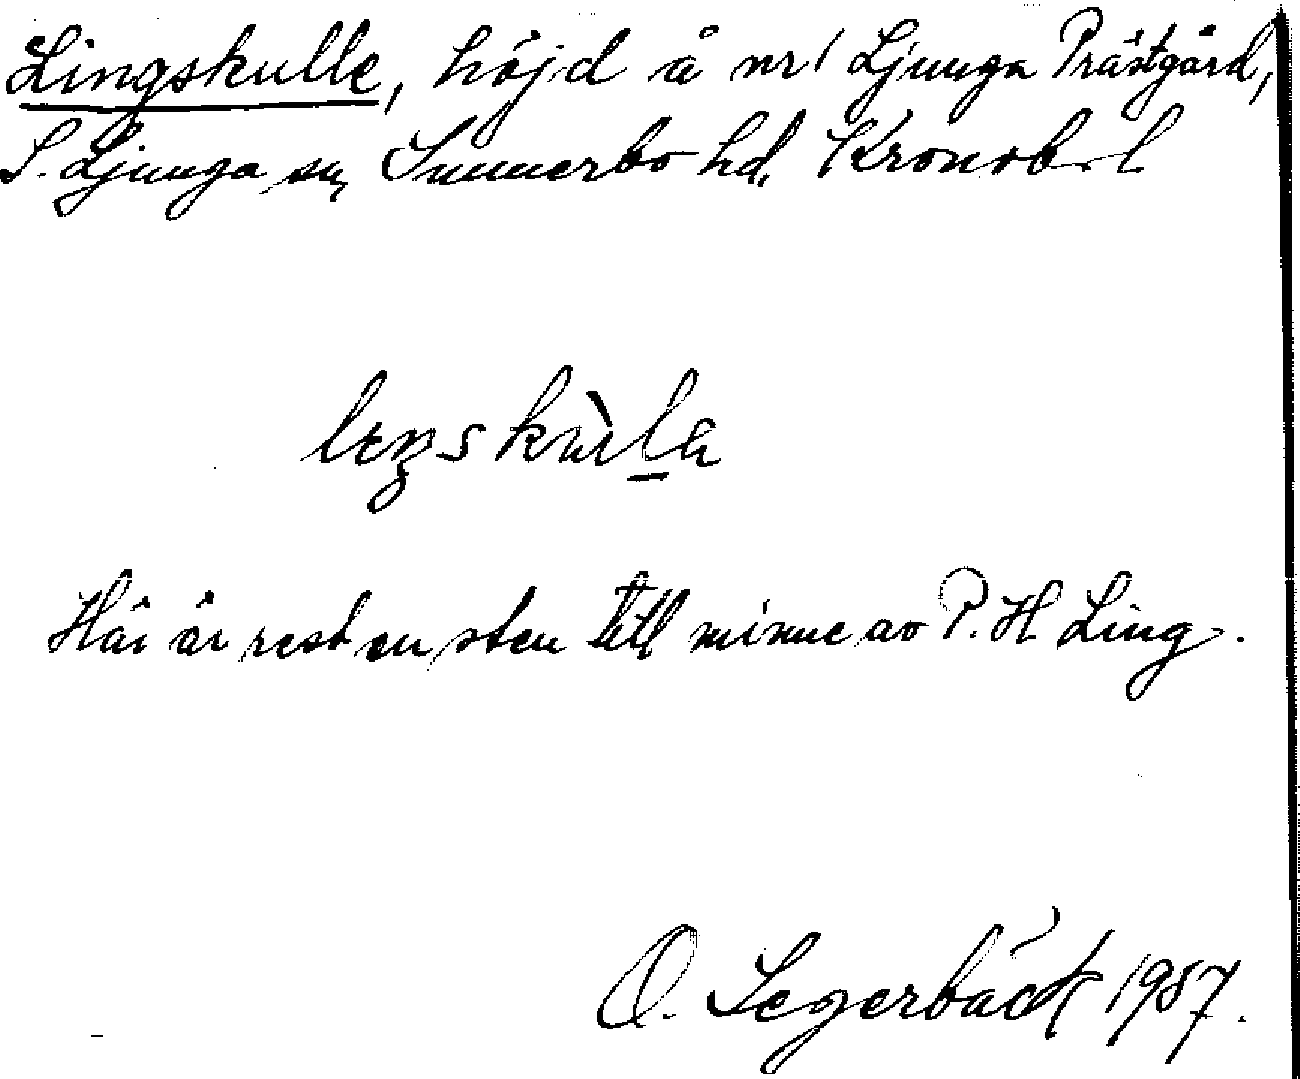 Lingskulle, höjd å nr 1 Ljunga Prästgård,
S. Ljunga sn, Sunnerbo hd. Kronob. l
Här är rest en sten till minne av P. H Ling.
O. Segerbäck 1957.